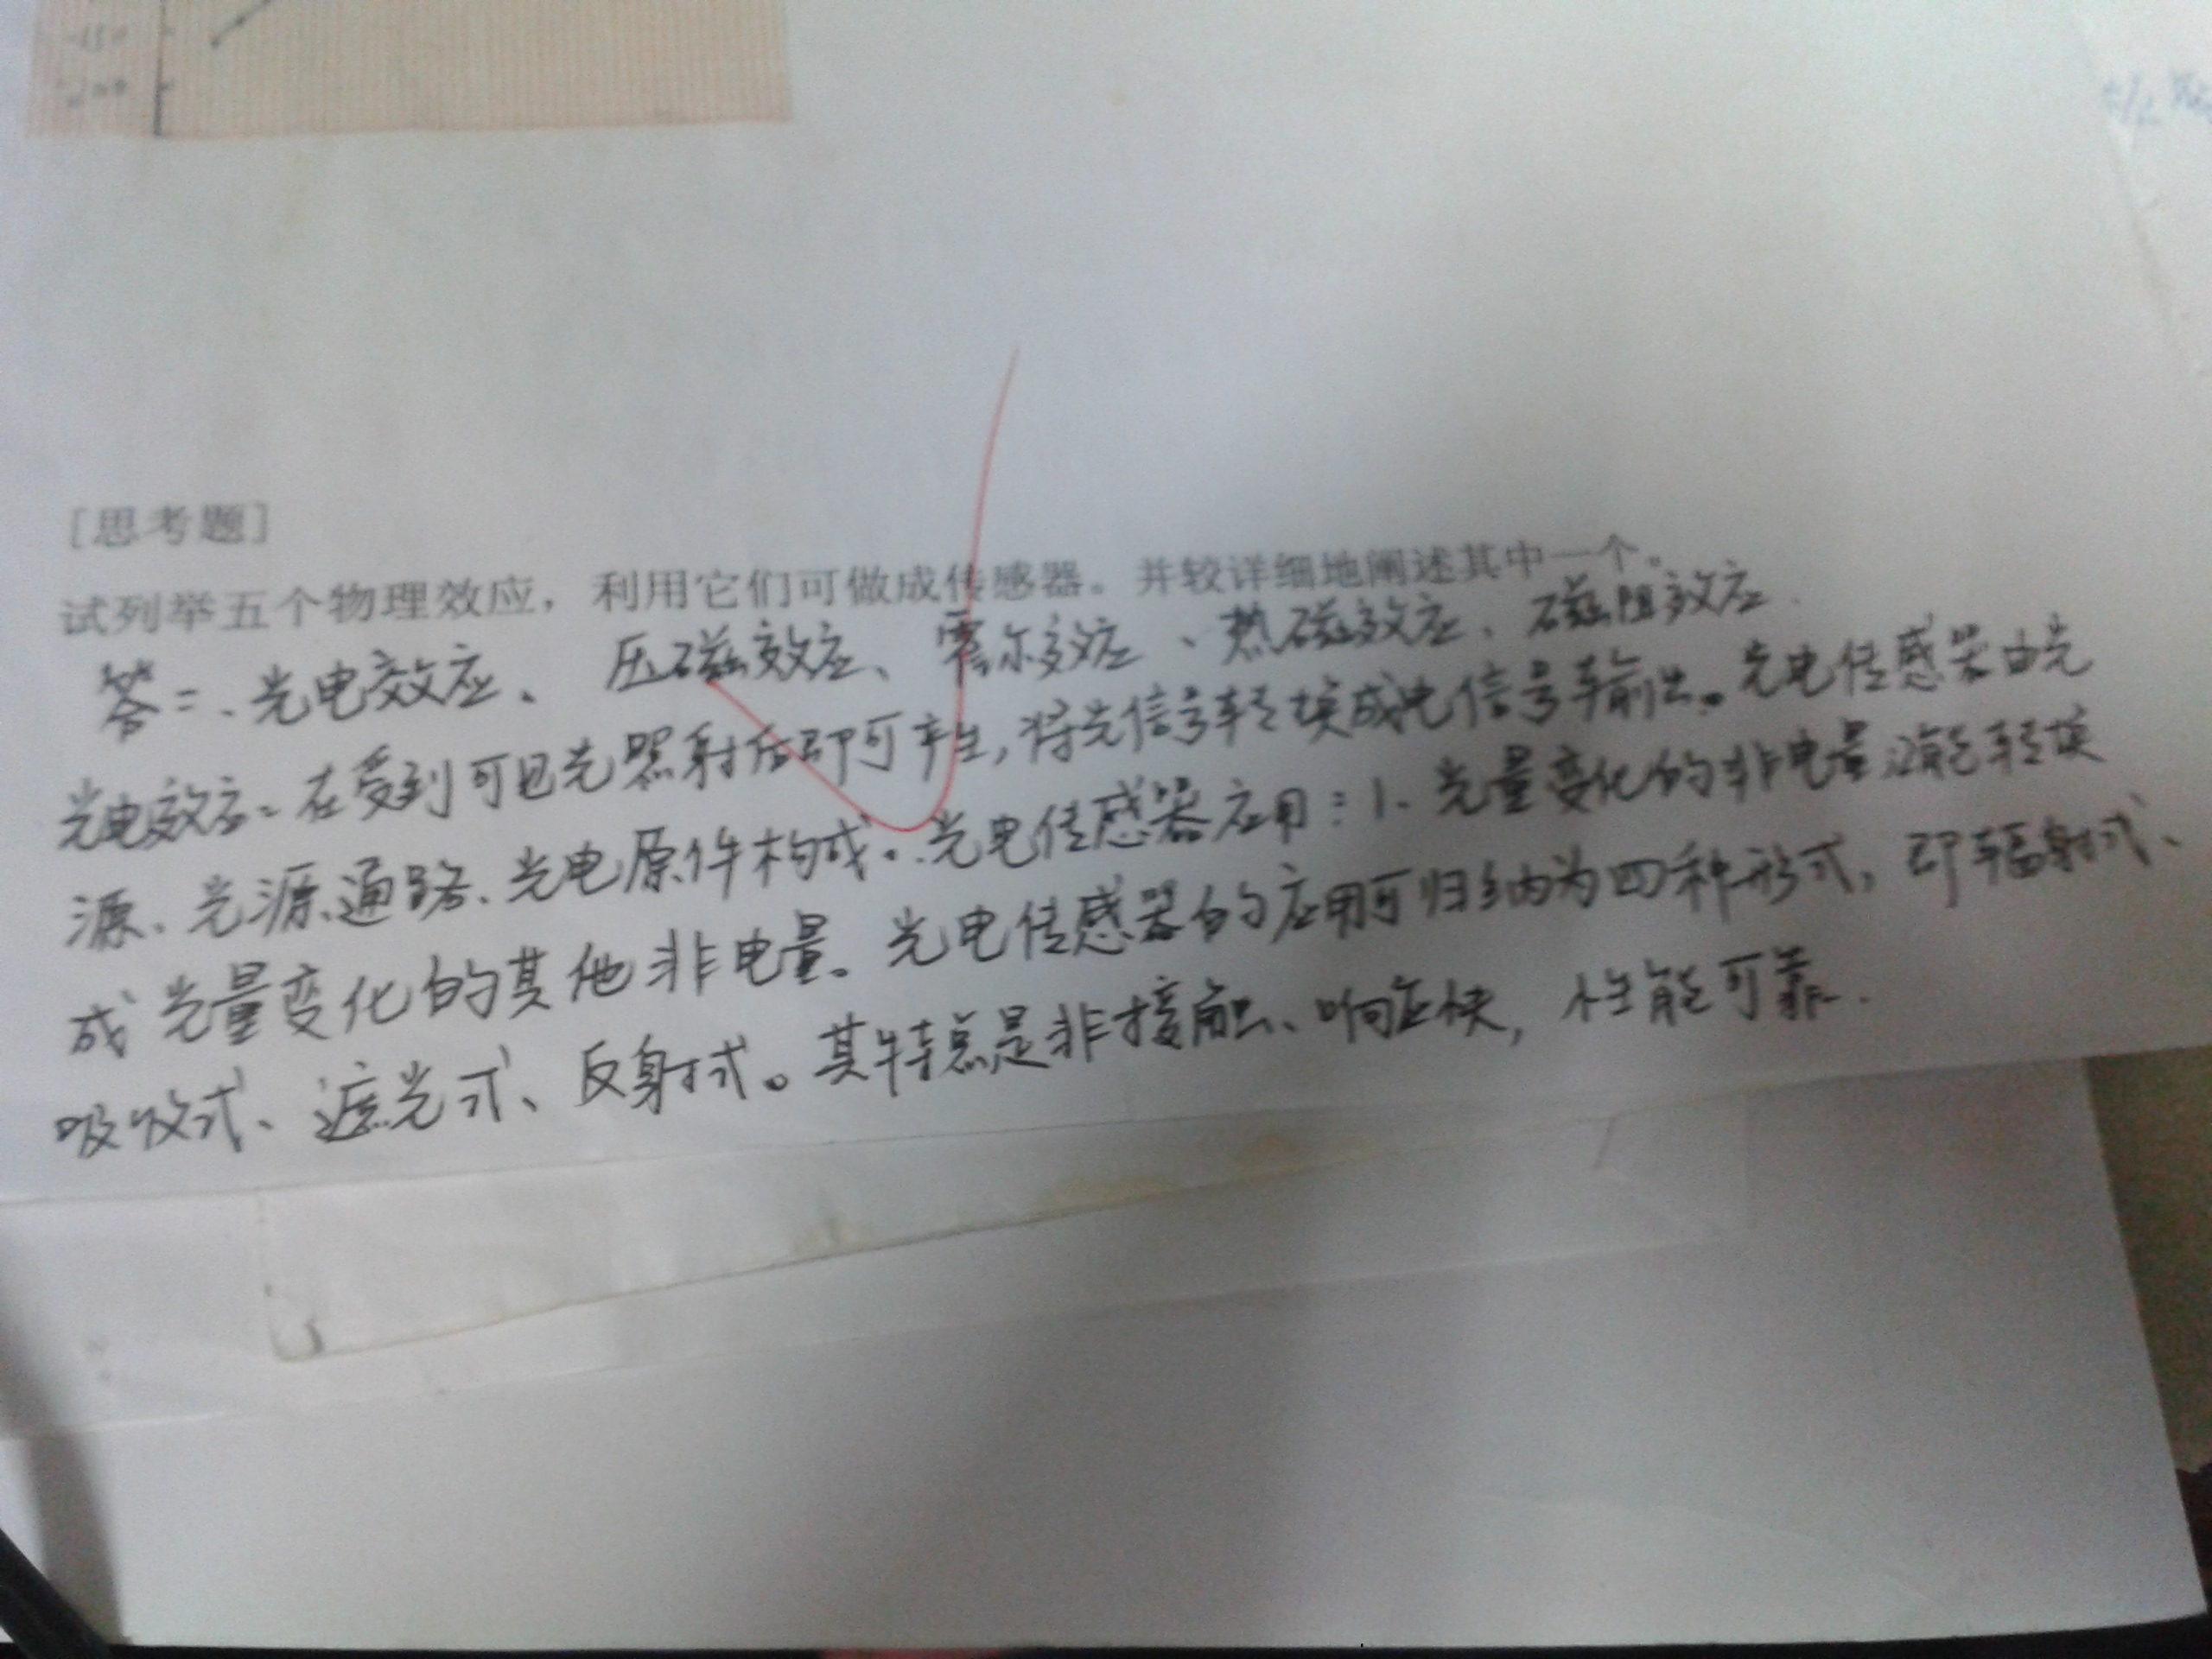 -150
-200
[思考题]
试列举五个物理效应，利用它们可做成传感器。并较详细地阐述其中一个。
答=、光电效应、压磁效应、霍尔效应、热磁效应、磁阻效应.
光电效应=在受到可见光照射后即可产生,将光信号转换成光信号输出。光电传感器由光
源、光源通路、光电原件构成。光电传感器应用:1、光量变化的非电量,能转换
成光量变化的其他非电量。光电传感器的应用可归纳为四种形式,即辐射式、
吸收式、遮光式、反射式。其特点是非接触、响应快,性能可靠.